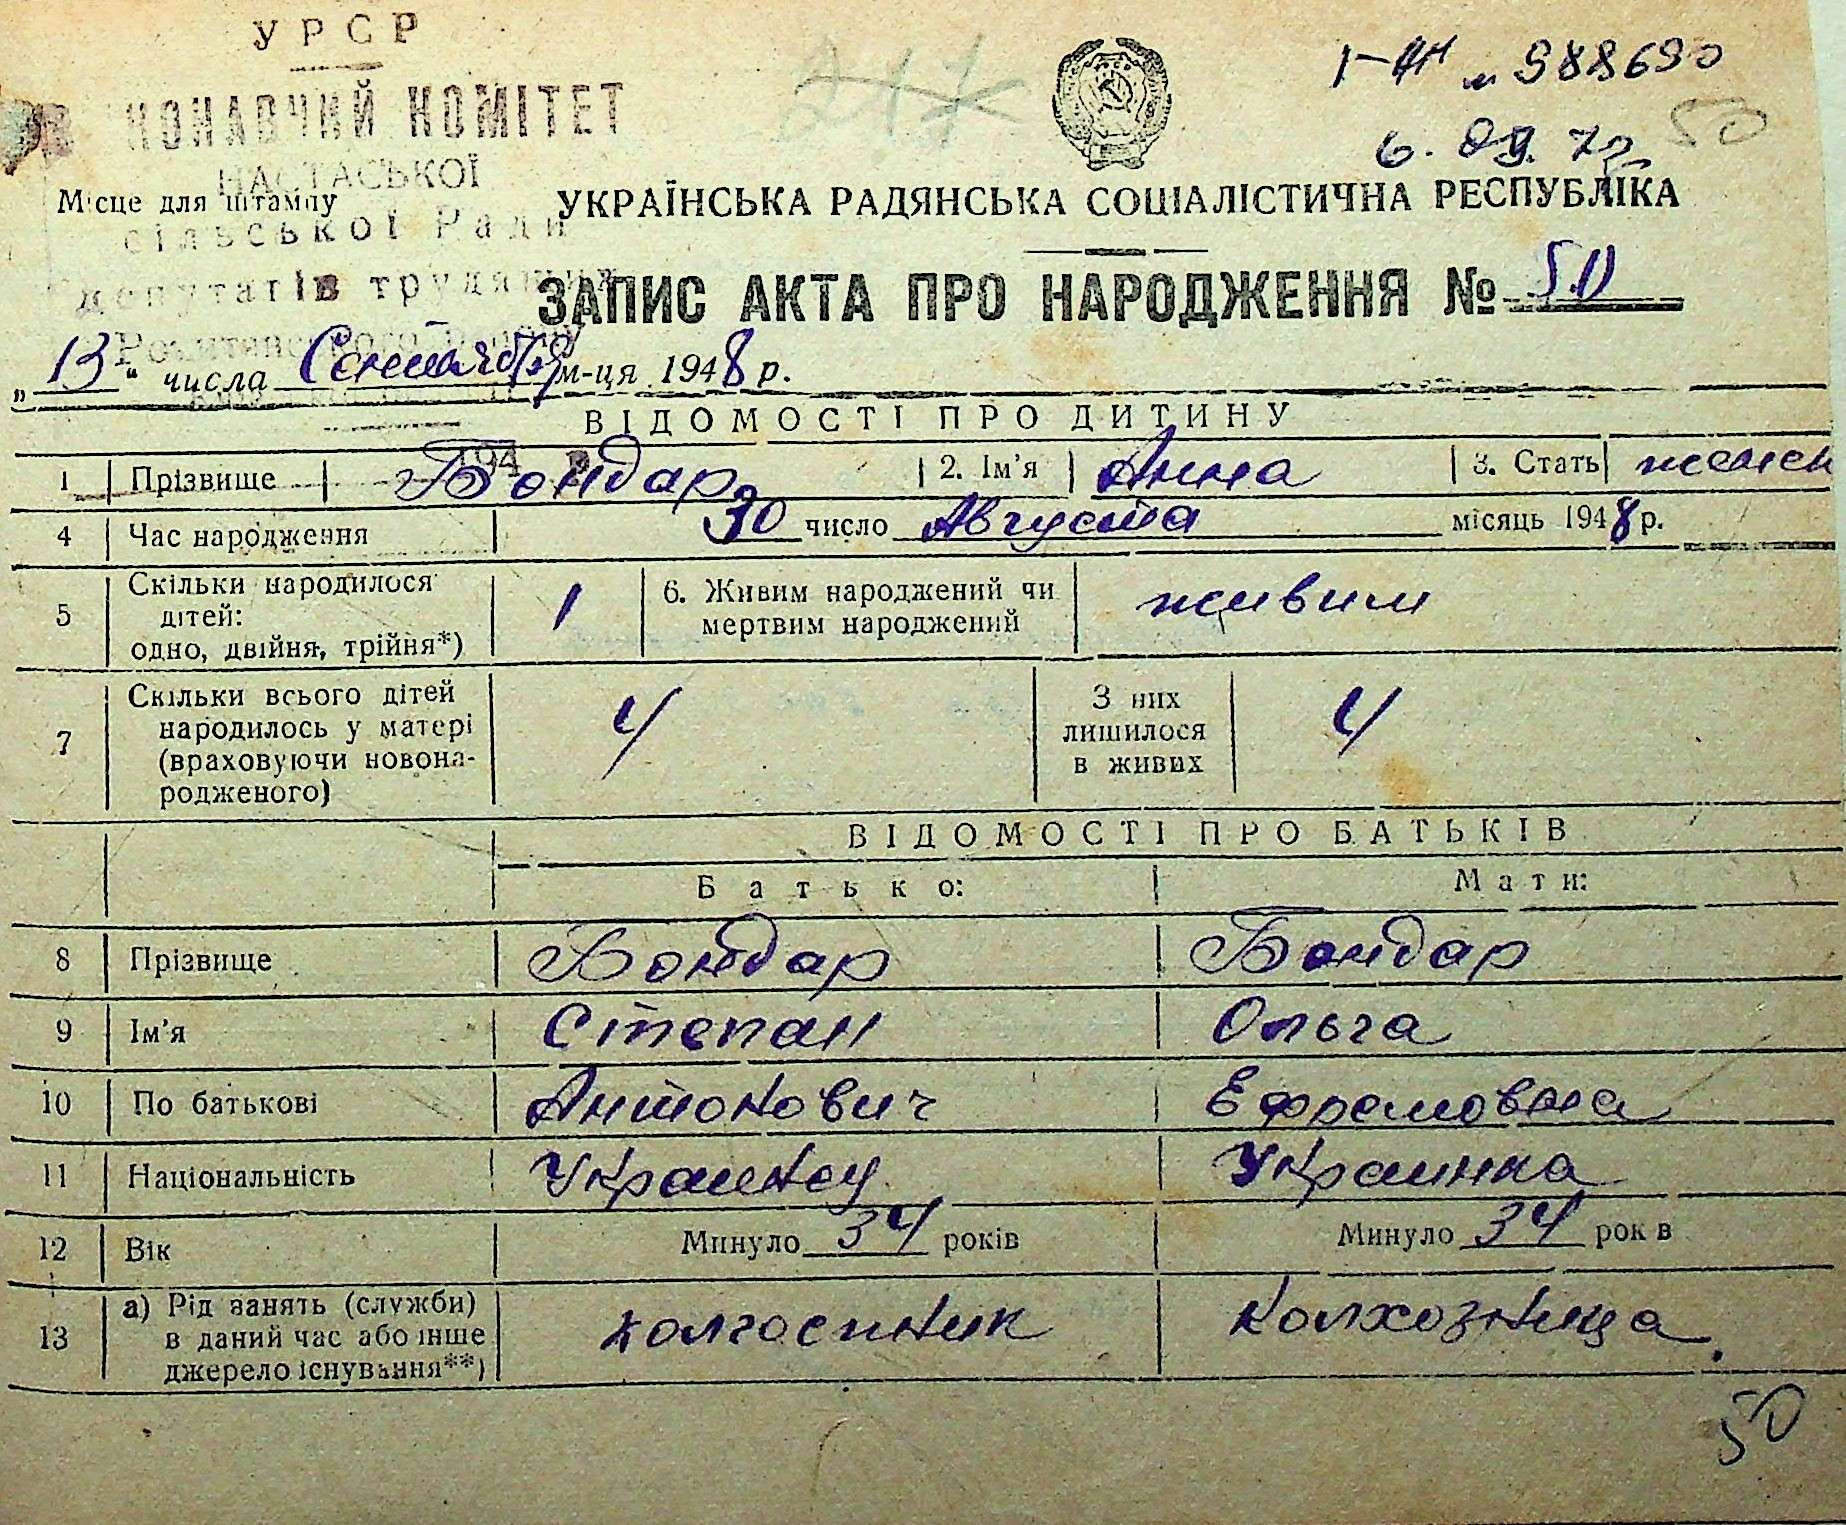 УРСР
КОНАВЧИЙ КОМІТЕТ
НАСТАСЬКОЇ
Місце для штампу
сільської Ради
депутатів трудящих
217
988690
50
6. 09. 72
УКРАЇНСЬКА РАДЯНСЬКА СОЦІАЛІСТИЧНА РЕСПУБЛІКА
ЗАПИС АКТА ПРО НАРОДЖЕННЯ № 50
„13“ числа Сентября м-ця 1948 р.
ВІДОМОСТІ ПРО ДИТИНУ
194 р.
1 Прізвище Бондар 2. Ім'я Анна 3. Стать женск
4 Час народження 30 число Августа місяць 1948 р.
5 Скільки народилося дітей: одно, двійня, трійня*) 1 6. Живим народжений чи мертвим народжений живим
7 Скільки всього дітей народилось у матері (враховуючи новонародженого) 4 З них лишилося в живих 4
ВІДОМОСТІ ПРО БАТЬКІВ
Батько: Мати:
8 Прізвище Бондар Бондар
9 Ім'я Степан Ольга
10 По батькові Антонович Ефремовна
11 Національність Украинец Украинка
12 Вік Минуло 34 років Минуло 34 рок в
13 а) Рід занять (служби) в даний час або інше джерело існування**) колгоспник колхозница.
50